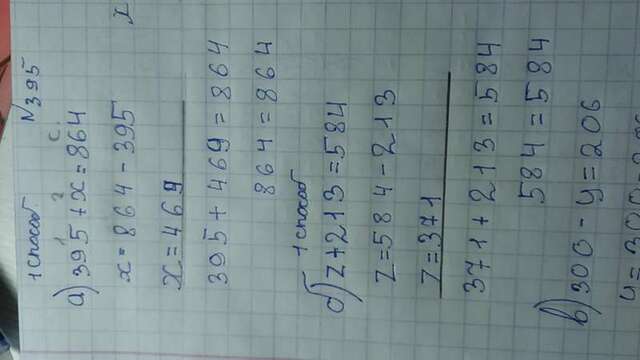 N395
1 способ
1 2 с.
а) 395 + x = 864
x = 864 - 395
x = 469
395 + 469 = 864
864 = 864
1 способ
б) z + 213 = 584
z = 584 - 213
z = 371
371 + 213 = 584
584 = 584
в) 300 - y = 206